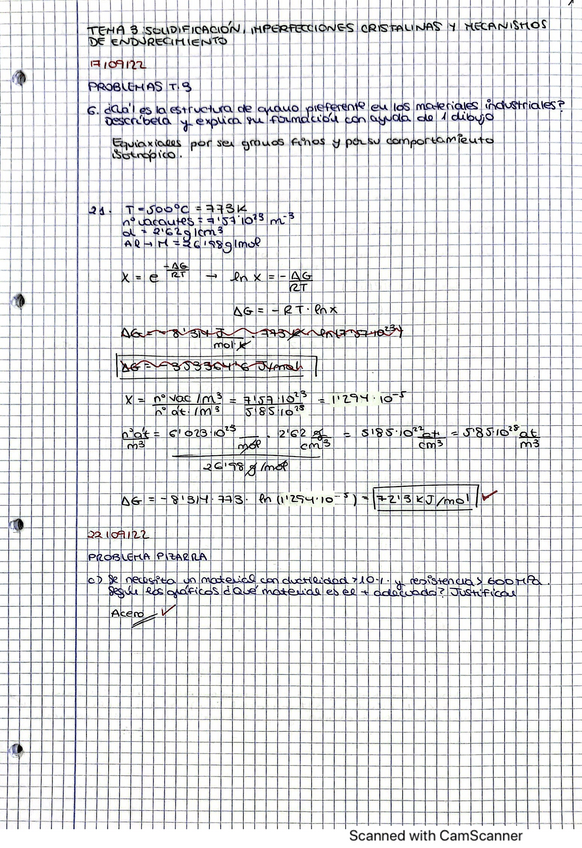 TEMA 3: SOLIDIFICACIÓN, IMPERFECCIONES CRISTALINAS Y MECANISMOS
DE ENDURECIMIENTO
17/09/22
PROBLEMAS T.3
6. ¿Cuál es la estructura de grano preferente en los materiales industriales?
Descríbela y explica su formación con ayuda de 1 dibujo
Equiaxiales por ser granos finos y por su comportamiento
isotrópico.
21. T = 500°C = 773K
nº vacantes = 7'57·10²³ m⁻³
d = 2'62 g/cm³
Al → M = 26'98 g/mol
X = e^(-ΔG/RT) → ln x = -ΔG/RT
ΔG = -RT·ln x
ΔG = -8'314 J/mol·K · 773 K · ln(7'57·10²³)
ΔG = -353364'6 J/mol
X = nº vac/m³ / nº át./m³ = 7'57·10²³ / 5'85·10²⁸ = 1'294·10⁻⁵
nº át/m³ = 6'023·10²³ /mol · 2'62 g/cm³ / 26'98 g/mol = 5'85·10²² at/cm³ = 5'85·10²⁸ at/m³
ΔG = -8'314·773·ln(1'294·10⁻⁵) = 72'3 KJ/mol ✓
22/09/22
PROBLEMA PIZARRA
c) Se necesita un material con ductilidad >10% y resistencia > 600 MPa.
Según los gráficos ¿Qué material es el + adecuado? Justificar
Acero ✓
Scanned with CamScanner